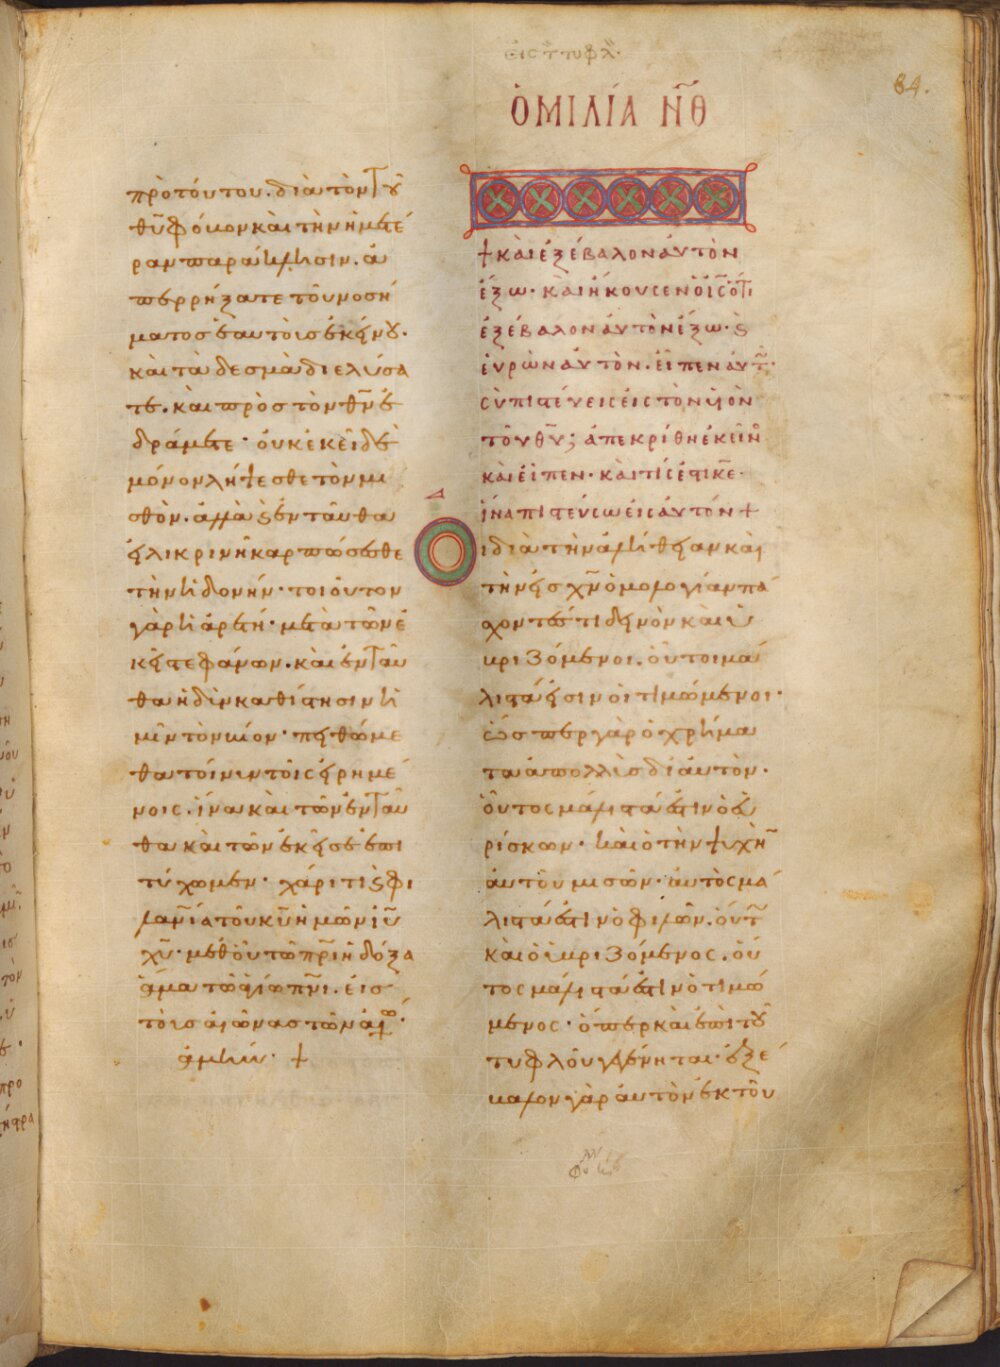 εἰς τ τυφλ
84.
ὉΜΙΛΊΑ Ν͞Θ
πρὸ τούτου. διὰ τὸν τοῦ
θυ φόβον καὶ τὴν ἡμετέ
ραν παραίνεσιν. ἀ
περρήξατε τοῦ νοσή
ματος ἑαυτοὺς ἐκείνου.
καὶ τὰ δεσμὰ διελύσα
τε. καὶ πρὸς τὸν θν ἐ
δράμετε· οὐκ ἐκεῖ δὲ
μόνον λήψεσθε τὸν μι
σθόν. ἀλλὰ ϗ ἐνταῦθα
εἰλικρινῆ καρπώσεσθε
τὴν ἡδονήν· τοιοῦτον
γὰρ ἡ ἀρετή· μετὰ τῶν ἐ
κεῖ στεφάνων. καὶ ἐνταῦ
θα ἡδίω καθίστησιν ἡ
μῖν τὸν βίον· πειθώμε
θα τοίνυν τοῖς εἰρημέ
νοις. ἵνα καὶ τῶν ἐνταῦ
θα καὶ τῶν ἐκεῖσε ἐπι
τύχωμεν· χάριτι ϗ φι
λανία τοῦ κυ ἡμῶν ιυ
χυ· μεθ οὗ τῶ πρι ἡ δόξα
ἅμα τῶ ἁγίω πνι. εἰς
τοὺς αἰῶνας τῶν αἰώ·
ἀμήν· +
+ καὶ ἐξέβαλον αὐτὸν
ἔξω· καὶ ἤκουσεν ὁ ις ὅτι
ἐξέβαλον αὐτὸν ἔξω· ϗ
εὑρὼν αὐτὸν. εἶπεν αὐτ·
σὺ πιστεύεις εἰς τὸν υἱὸν
τοῦ θυ; ἀπεκρίθη ἐκεῖν
καὶ εἶπεν· καὶ τίς ἐστι κε·
ἵνα πιστεύσω εἰς αὐτόν +
Δ
Ο
ἱ διὰ τὴν ἀλήθειαν καὶ
τὴν εἰς χν ὁμολογίαν πά
σχοντές τι δεινὸν καὶ ὑ
βριζόμενοι. οὗτοι μά
λιστά εἰσιν οἱ τιμώμενοι·
ὥσπερ γὰρ ὁ χρήμα
τα ἀπολλὺς δι αὐτὸν·
οὗτος μάλιστά ἐστιν ὁ εὑ
ρίσκων· καὶ ὁ τὴν ψυχὴ
αὐτοῦ μισῶν· αὐτὸς μά
λιστά ἐστιν ὁ φιλῶν. οὕτ
καὶ ὁ ὑβριζόμενος. οὗ
τος μάλιστά ἐστιν ὁ τιμώ
μενος· ὅπερ καὶ ἐπὶ τοῦ
τυφλοῦ γεγένηται· ἐξέ
βαλον γὰρ αὐτὸν ἐκ τοῦ